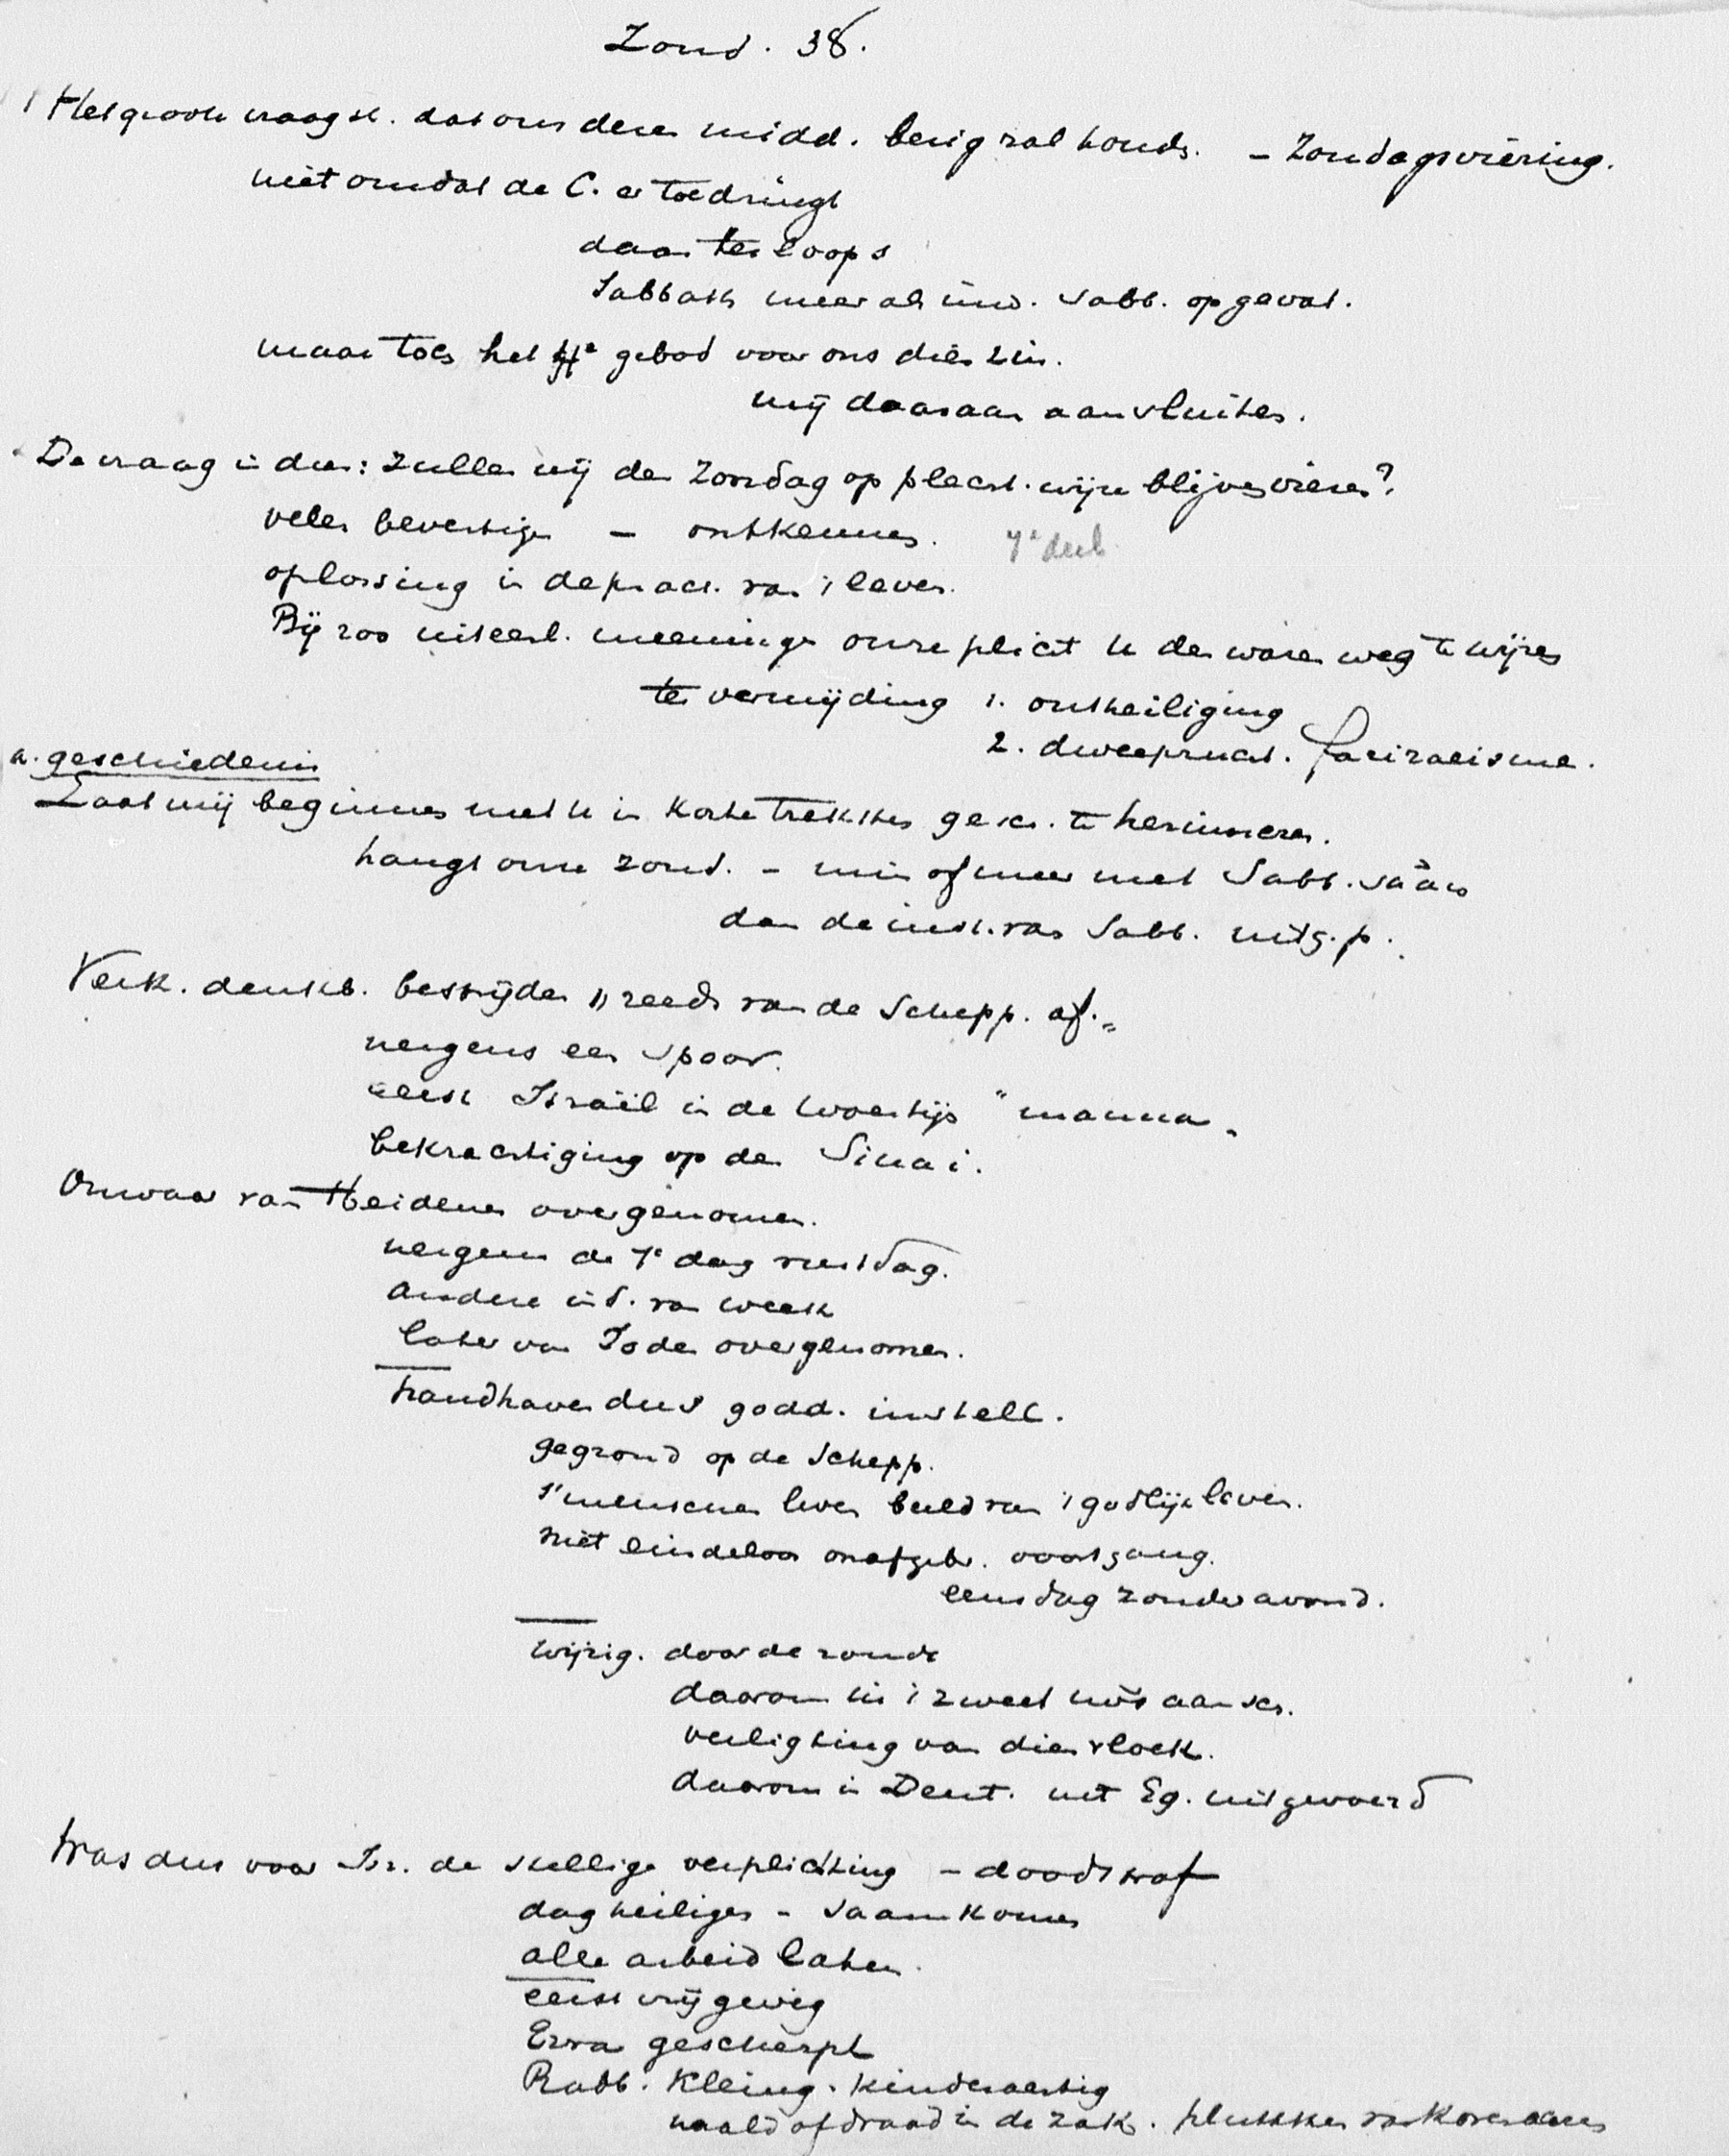 Zond. 38.
1 Het groote vraagst. dat ons dezen midd. bezig zal houden. – Zondagsviering.
niet omdat de C. er toe dringt
daar terloops
Sabbath meer als inw. Sabb. opgevat.
maar toch het 4e gebod voor ons dien zin.
wij daaraan aansluiten.
De vraag is deze: zullen wij den Zondag op plecht. wijze blijven vieren?
velen bevestigen – ontkennen. 7e deel
oplossing in de pract. van 't leven.
Bij zoo uiteenl. meeningen onze plicht u den waren weg te wijzen
ter vermijding 1. ontheiliging
2. dweepzucht. farizaeisme.
a. geschiedenis
Laat mij beginnen met u in korte trekken gesch. te herinneren.
hangt onze zond. – min of meer met Sabb. sââm
dan de inst. van Sabb. uitg. p.
Verk. denkb. bestrijden „reeds van de Schepp. af."
nergens een spoor.
eerst Israël in de woestijn "manna"
bekrachtiging op den Sinai.
Onwaar van Heidenen overgenomen.
nergens de 7e dag rustdag.
andere ind. van week
later van Joden overgenomen.
handhaven dus godd. instell.
gegrond op de Schepp.
's menschen leven beeld van 't godlijk leven.
niet eindeloos onafgebr. voortgang.
eens dag zonder avond.
wijzig. door de zonde
daarom in 't zweet uws aansch.
verligting van dien vloek.
daarom in Deut. uit Eg. uitgevoerd
Was dus voor Isr. de stellige verplichting – doodstraf
dag heiligen – saamkomen
alle arbeid laten.
eerst vrij gewig
Ezra gescherpt
Rabb. Kleing. kinderachtig
naald of draad in de zak. plukken van korenaren